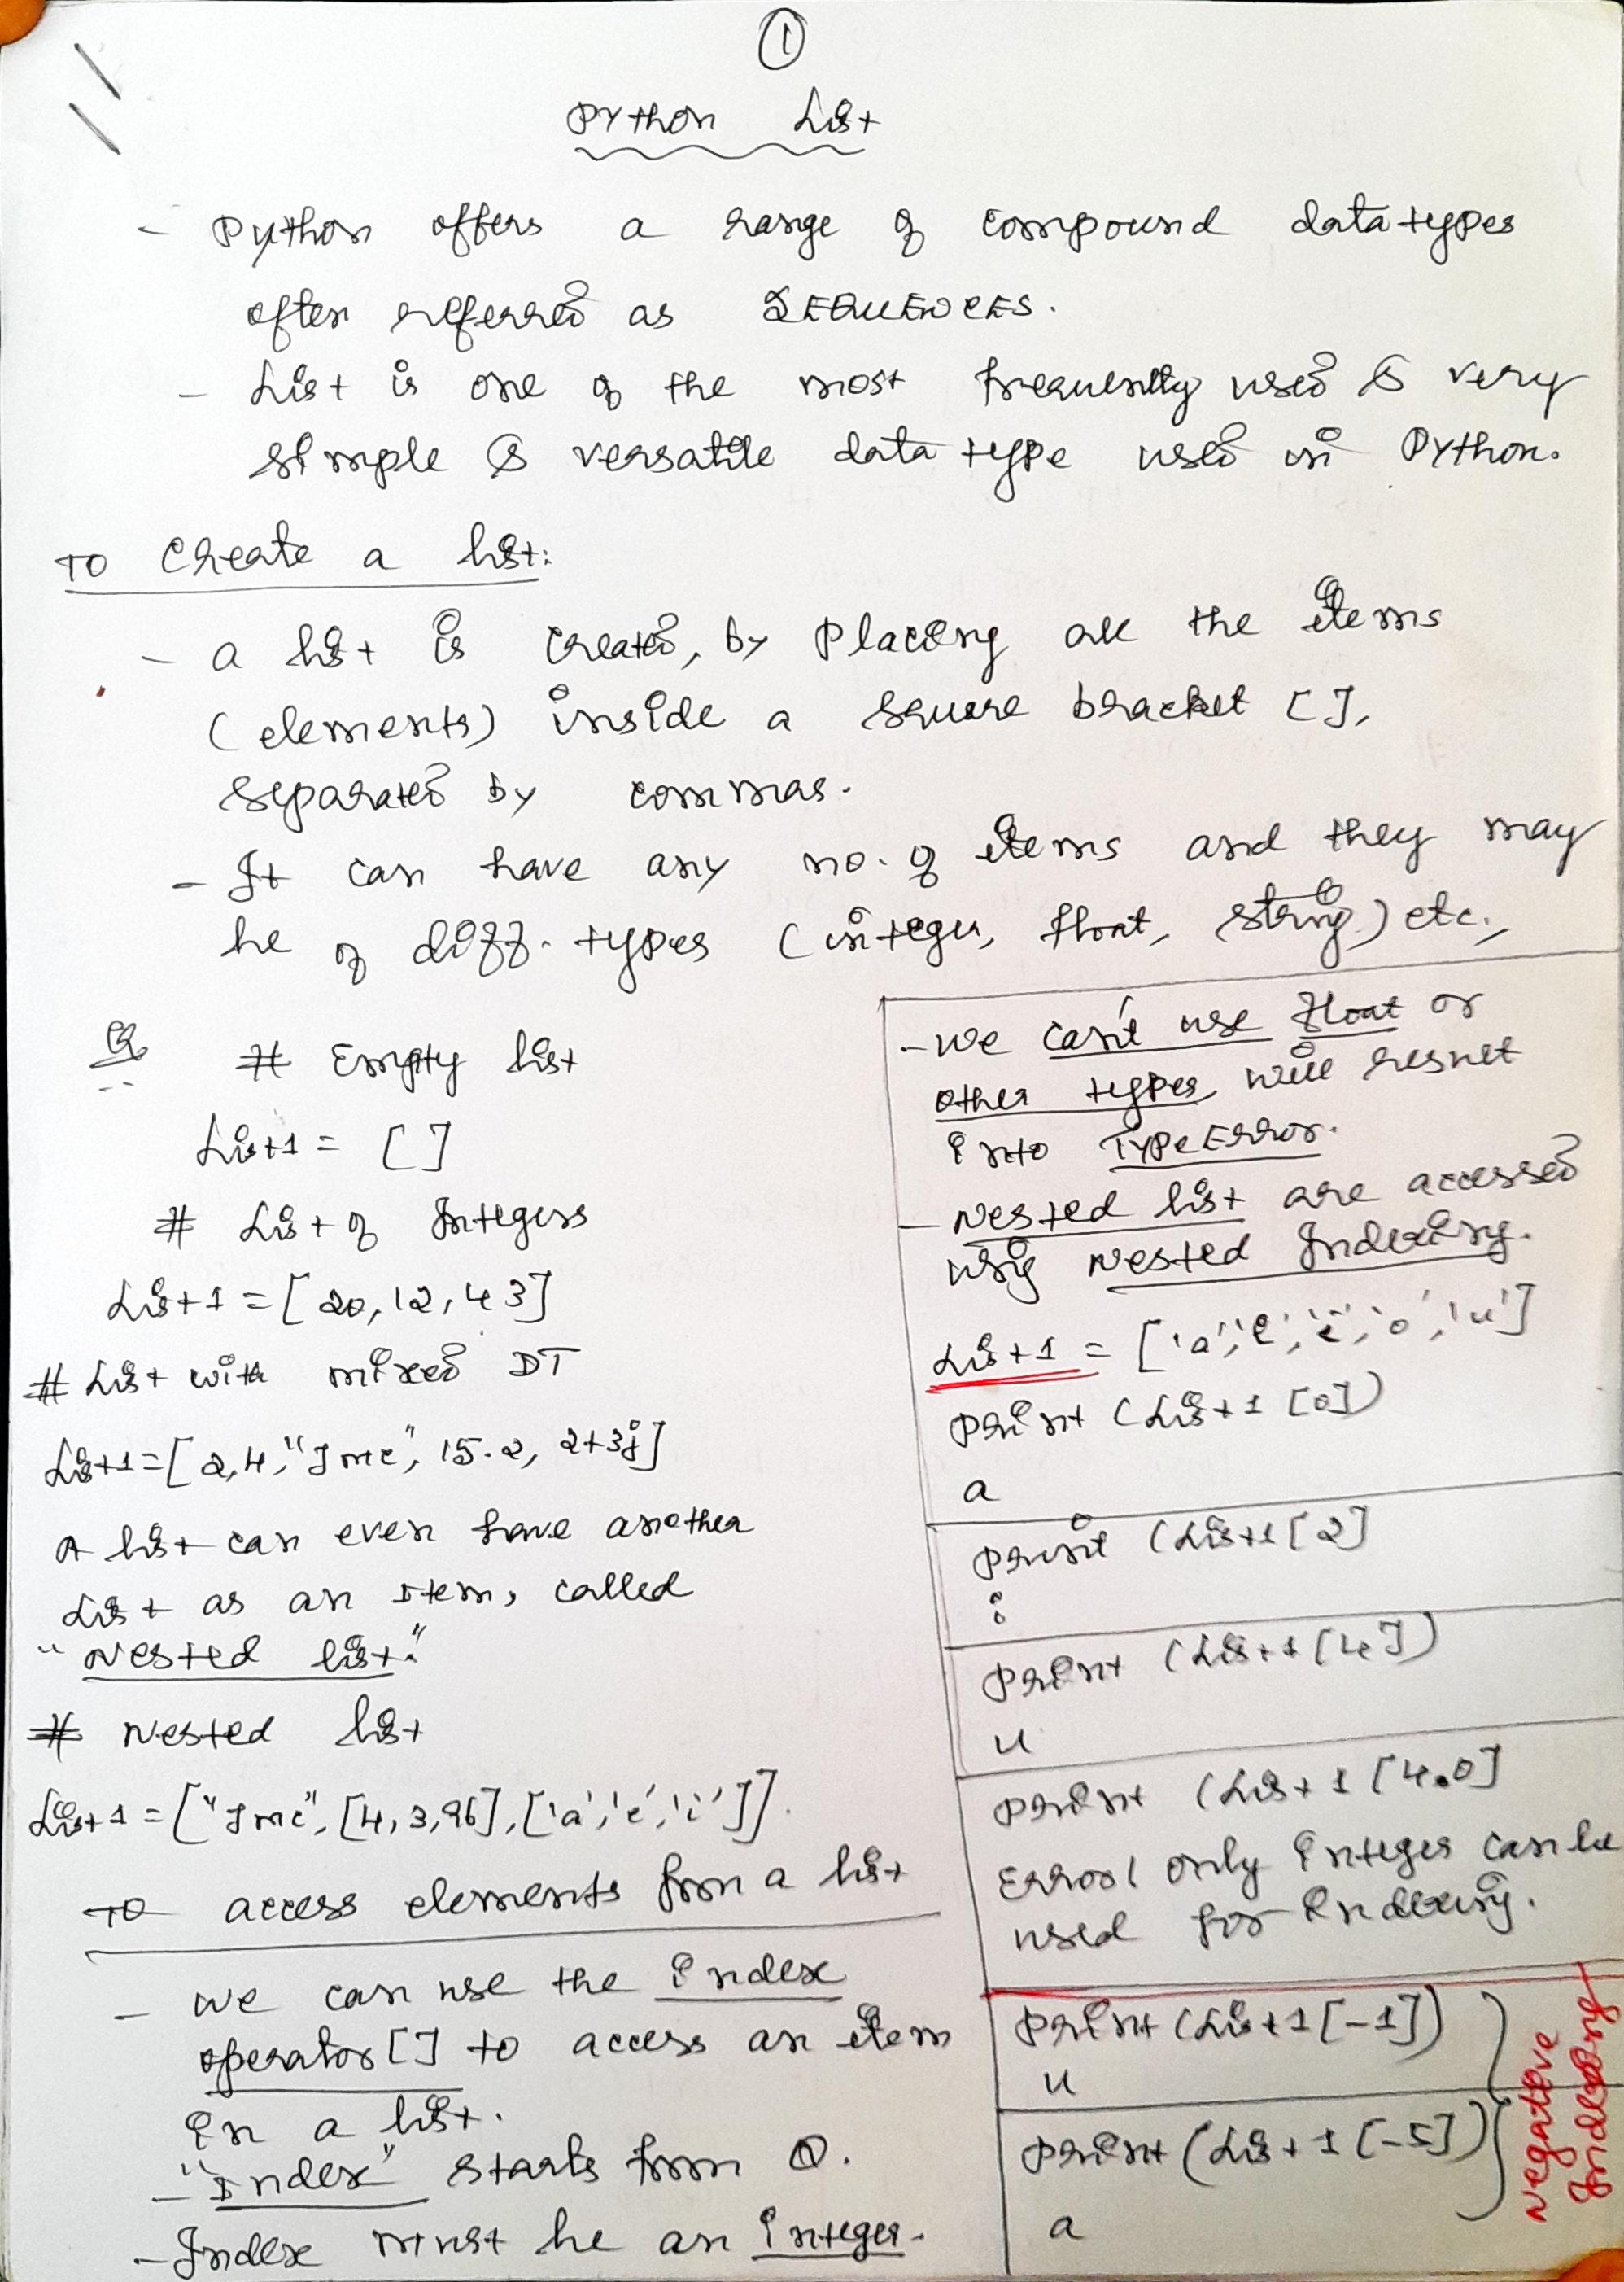 1
Python List
- Python offers a range of compound data types
often referred as SEQUENCES.
- List is one of the most frequently used & very
simple & versatile data type used in Python.
To Create a list:
- a list is created, by placing all the items
(elements) inside a square bracket [],
separated by commas.
- It can have any no. of items and they may
be of diff. types (integer, float, string) etc.,
# Empty list
List1 = [ ]
# List of Integers
List1 = [20, 12, 43]
# List with mixed DT
List1 = [2, 4, "Jmc", 15.2, 2+3j]
A list can even have another
List as an Item, called
"Nested list."
# Nested list
List1 = ["Jmc", [4, 3, 96], ['a', 'e', 'i']].
To access elements from a list
- we can use the index
operator [] to access an item
in a list.
- "Index" starts from 0.
- Index must be an integer.
- we can't use float or
other types, will result
into TypeError.
- Nested list are accessed
using Nested Indexing.
List1 = ['a', 'e', 'i', 'o', 'u']
print (List1 [0])
a
print (List1 [2]
i
print (List1 [4])
u
print (List1 [4.0]
Error! only integer can be
used for indexing.
print (List1 [-1])
u
print (List1 [-5])
a
Negative
Indexing